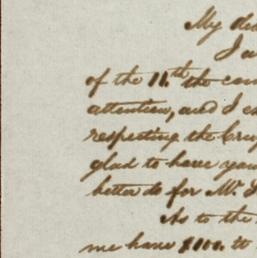 My dear
I a
of the 11.th the com
attention, and I e
respecting the Cru
glad to have you
better do for Mr
As to the
me have $100. to